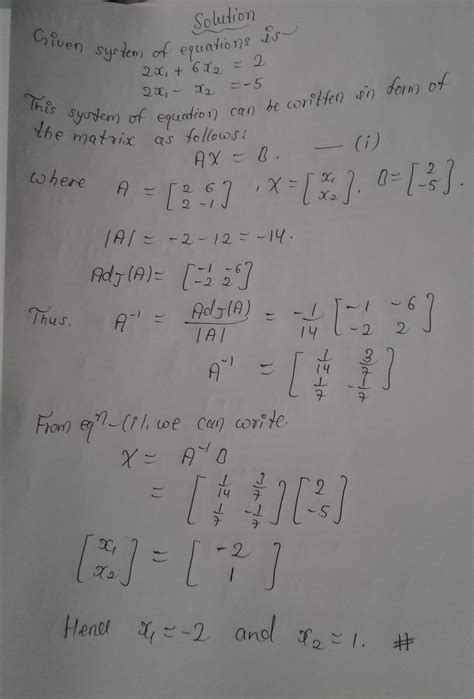 Solution
Given system of equations is
2x₁ + 6x₂ = 2
2x₁ - x₂ = -5
This system of equation can be written in form of
the matrix as follows:
AX = B. — (i)
where A = [2 6; 2 -1], X = [x₁; x₂], B = [2; -5]
|A| = -2 - 12 = -14.
Adj(A) = [-1 -6; -2 2]
Thus, A⁻¹ = Adj(A)/|A| = -1/14 [-1 -6; -2 2]
A⁻¹ = [1/14 3/7; 1/7 -1/7]
From eqⁿ-(i), we can write.
X = A⁻¹B
= [1/14 3/7; 1/7 -1/7] [2; -5]
[x₁; x₂] = [-2; 1]
Hence x₁ = -2 and x₂ = 1. #